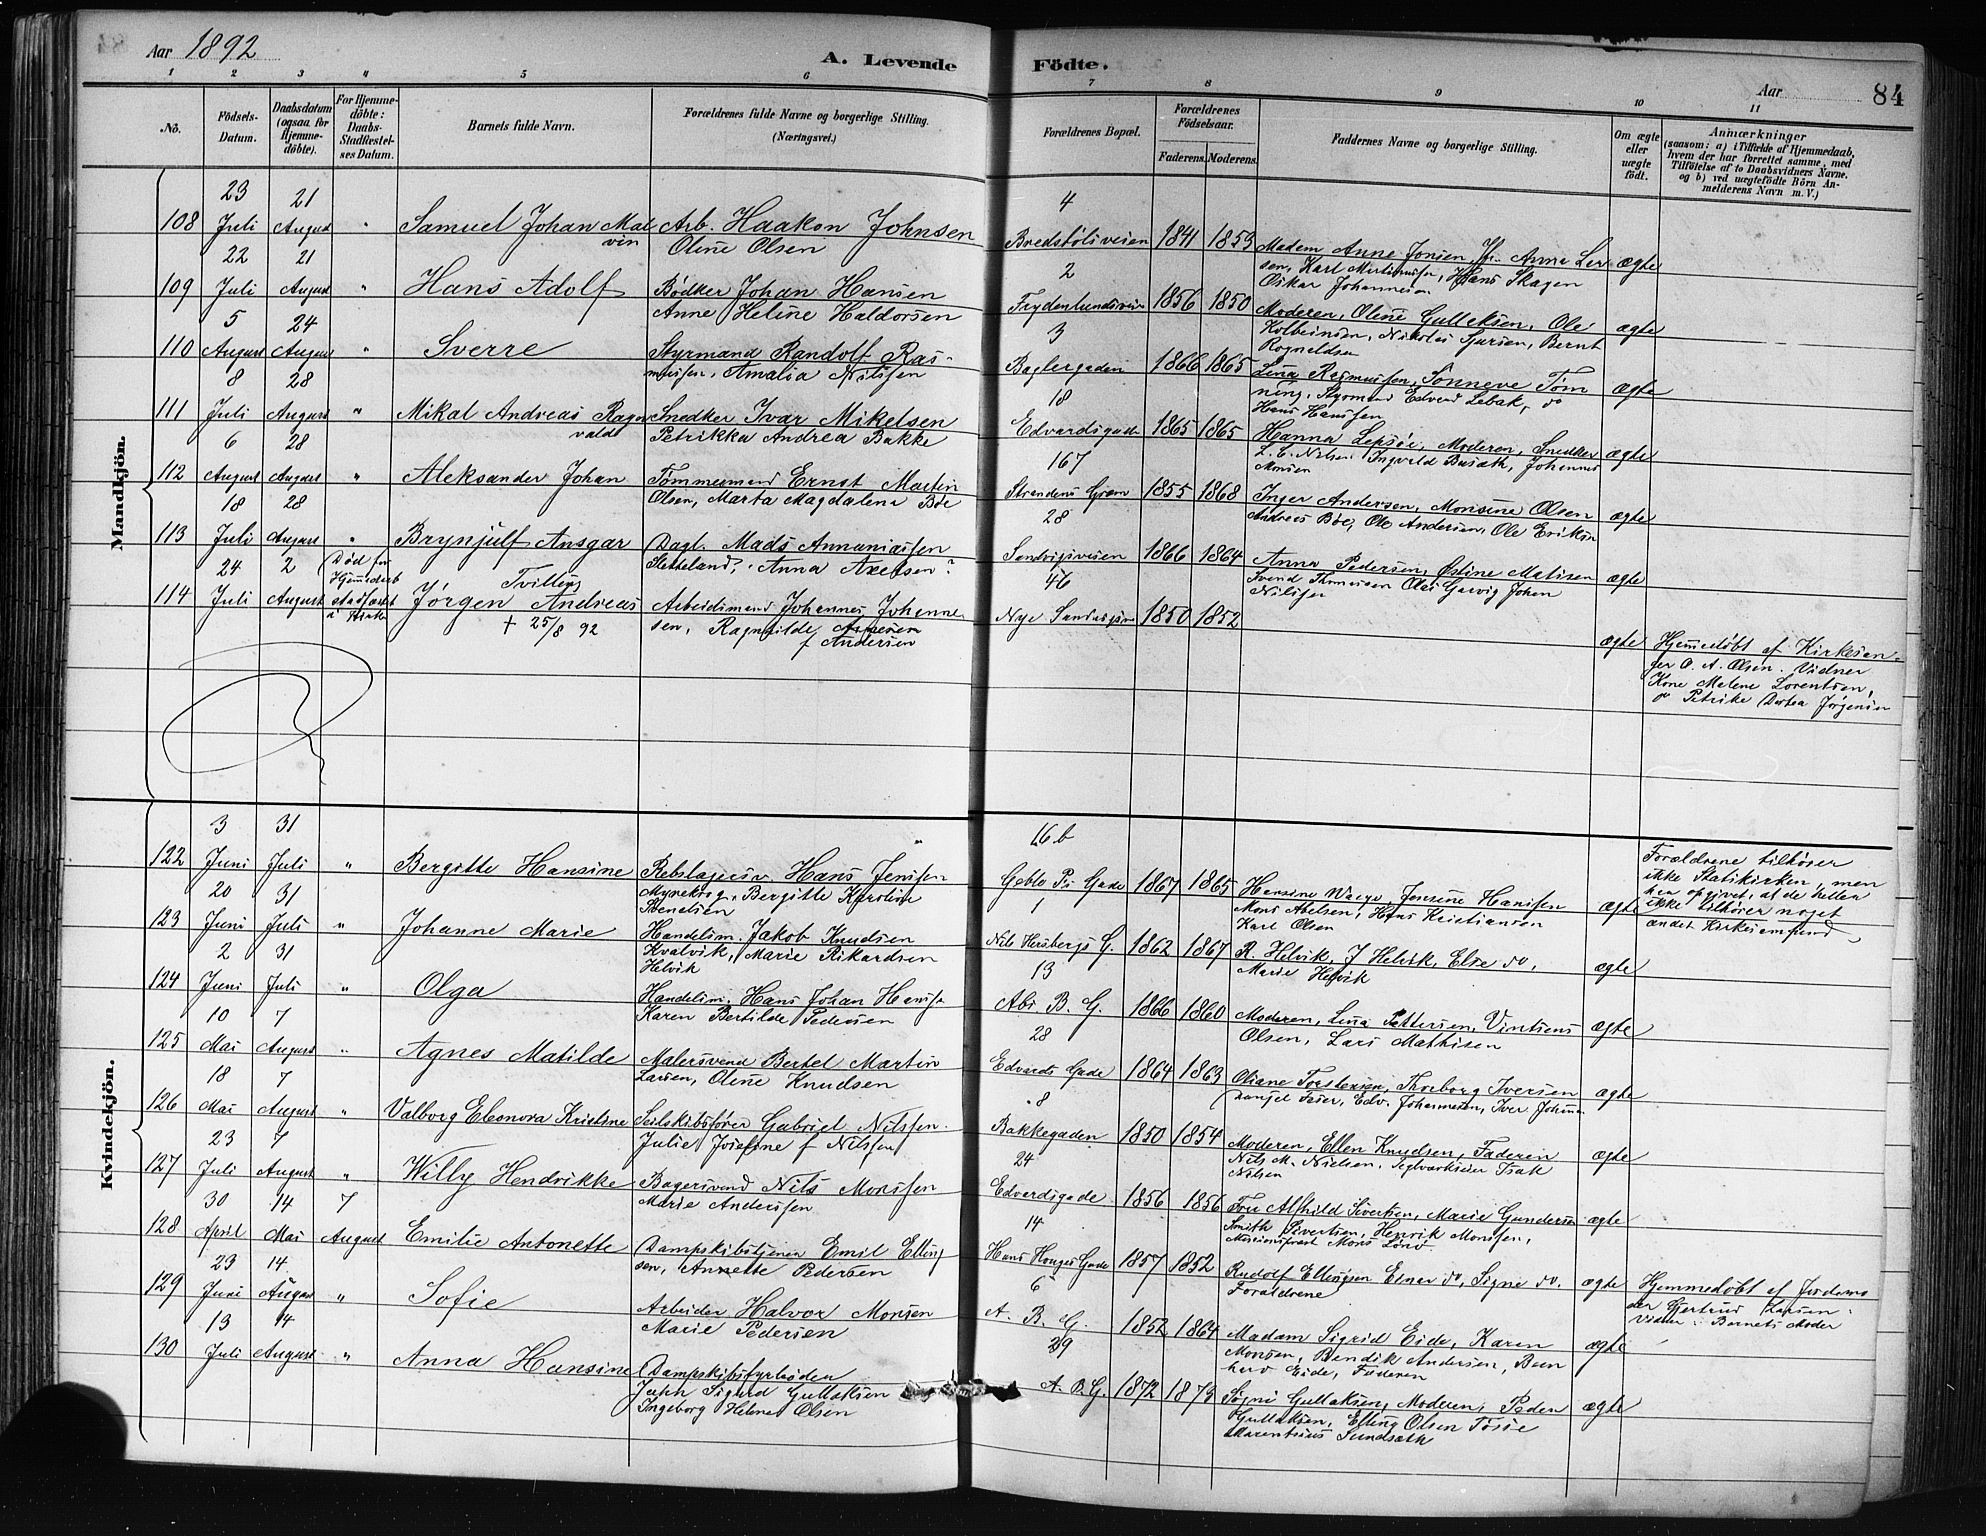 Aar 1892
A. Levende Födte.
Aar
84
1 2 3 4 5 6 7 8 9 10 11
No.
Födsels-Datum.
Daabsdatum (ogsaa for Hjemme-döbte).
For Hjemme-döbte: Daabs-Stadfæstel-ses Datum.
Barnets fulde Navn.
Forældrenes fulde Navne og borgerlige Stilling. (Næringsvei.)
Forældrenes Bopæl.
Forældrenes Födselsaar.
Faderens. Moderens.
Faddernes Navne og borgerlige Stilling.
Om ægte eller uægte födt.
Anmærkninger
(saasom: a) i Tilfælde af Hjemmedaab, hvem der har forrettet samme, med Tilföielse af to Daabsvidners Navne. og b) ved uægtefödte Börn Anmelderens Navn m. V.)
Mandkjön.
108 23 Juli 21 August " Samuel Johan Malvin
Arb. Haakon Johnsen
Oline Olsen
4 Bredstöliveien 1841 1853
Madem Anne Jonsen, Anna
Karl Martinusen, Hans Skagen
Oskar Johannesen
ægte
109 22 Juli 21 August " Hans Adolf
Bödker Johan Hansen
Anne Heline Haldorsen
2 Frydenlundsveien 1856 1850
Moderen, Oline Gullaksen, Ole
Kolbeinsen, Nikolai Sjursen, Bernt
ægte
110 5 August 24 August " Sverre
Styrmand Randolf Ras-
mussen, Amalia Nilssen
3 Baglergaden 1866 1865
Lina Rasmussen, Sönneve Töm
ning, Styrmand Edvard Lebak, do
Hans Hanssen
ægte
111 8 Juli 28 August " Mikal Andreas Ragnvald
Snedker Ivar Mikelsen
Petrikka Andrea Bakke
18 Edvardsgade 1865 1865
Hanna Lepsöe, Moderen, Snedker
L. E. Nilsen Ingvald Johannes
Monsen
ægte
112 6 August 28 August " Aleksander Johan
Tömmermand Ernst Martin
Olsen, Marta Magdalena Böe
167 Strandens Græn 1855 1868
Inger Andersen, Monsine Olsen
Andreas Böe, Ole Andersen, Ole Eriksen
ægte
113 18 Juli 28 August " Brynjulf Ansgar
Dagl. Mads Annaniassen
Sletteland, Anna Axelsen?
28 Sandvigsveien 1866 1864
Anna Pedersen, Östine Matisen
Svend Thomassen Olai Garvig Johan
Nilssen
ægte
114 24 Juli 2 August Död för
Hjemmedaab
stadfæstet
i Kirken
Tvilling
Jørgen Andreas
+ 25/8 92
Arbeidsmand Johannes Johanne-
sen, Ragnhilde
f Andersen
46 Nye Sandvigsvei 1850 1852
ægte
Hjemmedöbt af Kirkesan-
ger O. A. Olsen. Vidner
Kone Malene Lorentsen,
do Petrike Dortea Jørgensen
Kvindekjön.
122 3 Juni 31 Juli " Bergitte Hansine
Rebslagersv. Hans Jenssen
Mynekrog, Bergitte Karoline
16 b Geble Ps Gade 1867 1865
Hansine Waage Jonsine Hanssen
Mons Abelsen, Hans Kristiansen
Karl Olsen
ægte
Forældrene tilhører
ikke Statskirken, men
har opgivet, at de heller
ikke tilhører noget
andet Kirkesamfund
123 20 Juni 31 Juli " Johanne Marie
Handelsm. Jakob Knudsen
Kvalvik, Marie Rikardsen
Helvik
1 Nils Hersbergs G. 1862 1867
R. Helvik, J Helvik, Else do,
Marie Helvik
ægte
124 2 Juni 31 Juli " Olga
Handelsm. Hans Johan Hanss
Karen Bertilde Pedersen
13 Abs. B. G. 1866 1860
Moderen, Lina Pettersen, Vintsens
Olsen, Lars Mathisen
ægte
125 10 Mai 7 August " Agnes Matilde
Malersvend Bertel Martin
Larsen, Oline Knudsen
28 Edvards Gade 1864 1863
Oliane Torstensen, Thorborg Iversen
Daniel Peder, Edv. Johannesen, Iver Johnsen
ægte
126 18 Mai 7 August " Valborg Eleonora Kristine
Seilskibsfører Gabriel Nilssen
Julie Josefine f Nilssen
8 Bakkegaden 1850 1854
Moderen, Ellen Knudsen, Faderen
Nils M. Nielsen, Teglværkseier Isak
Nilsen
ægte
127 23 Juli 7 August " Willy Hendrikke
Bagersvend Nils Monssen
Marie Anderssen
24 Edvardsgade 1856 1856
Fru Alfhild Sivertsen, Marie Gundersen
Smith Sivertsen, Henrik Monssen,
Missionsprest Mons Lönö
ægte
128 30 April 14 Mai 7 August Emilie Antonette
Dampskibstjener Emil Elling
sen, Annette Pedersen
14 Hans Hauges Gade 1857 1852
Rudolf Ellingsen Einar do, Signe do.
Forældrene
ægte
Hjemmedöbt af Jordemo
der Gjertrud Larsen.
Vidner: Barnets Moder
129 23 Juni 14 August " Sofie
Arbeider Halvor Monsen
Marie Pedersen
6 A. B. G. 1852 1864
Madam Sigrid Eide, Karen
Monsen, Bendik Andersen, Bern
hard Eide, Faderen
ægte
130 13 Juli 14 August " Anna Hansine
Dampskibsfyrböder
Sigurd Gullaksen
Ingeborg Heline Olsen
29 A. B. G. 1872 1873
Signi Gullaksen, Moderen, Peder
Gullaksen, Elling Olsen Tösöe
Marentsius Sundsæth
ægte